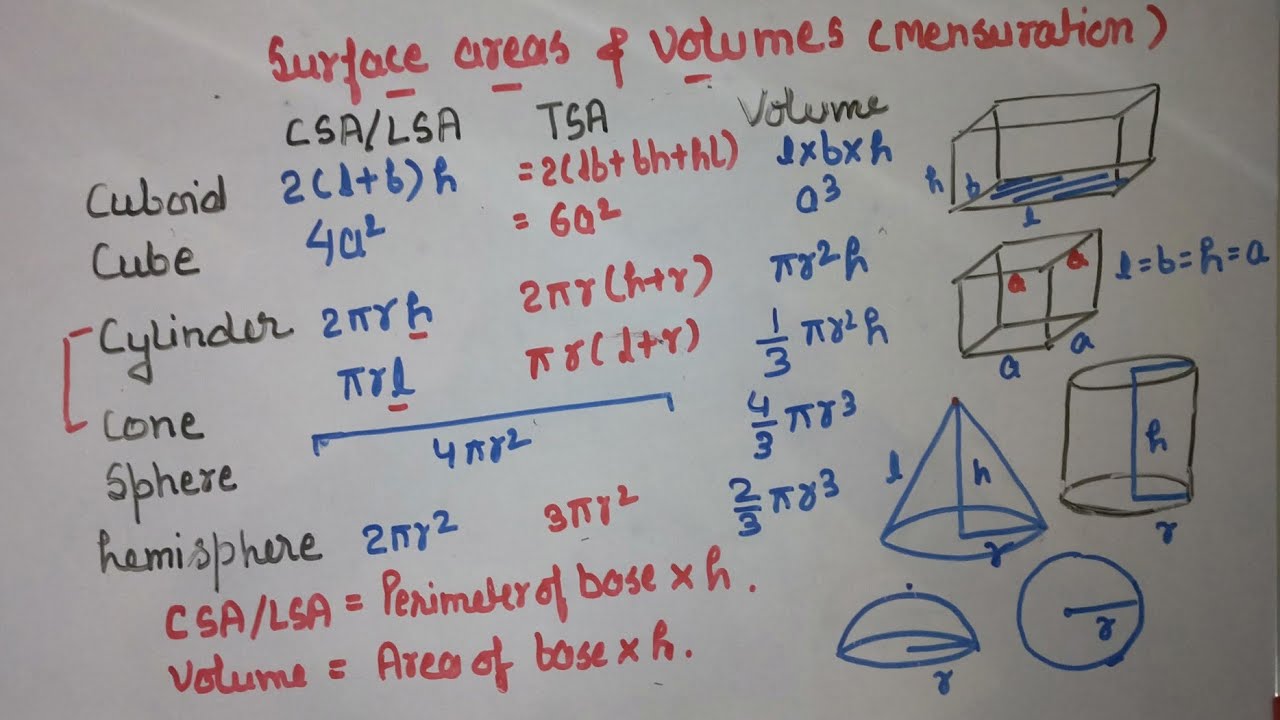 Surface areas & Volumes (Mensuration)
CSA/LSA TSA Volume
Cuboid 2(l+b)h =2(lb+bh+hl) l×b×h
Cube 4a² = 6a² a³
Cylinder 2πrh 2πr(h+r) πr²h
Cone πrl πr(l+r) 1/3 πr²h
Sphere 4πr² 4/3 πr³
hemisphere 2πr² 3πr² 2/3 πr³
CSA/LSA = Perimeter of base × h.
Volume = Area of base × h.
h b l
a a l=b=h=a
a a
l h r
h r
r
r